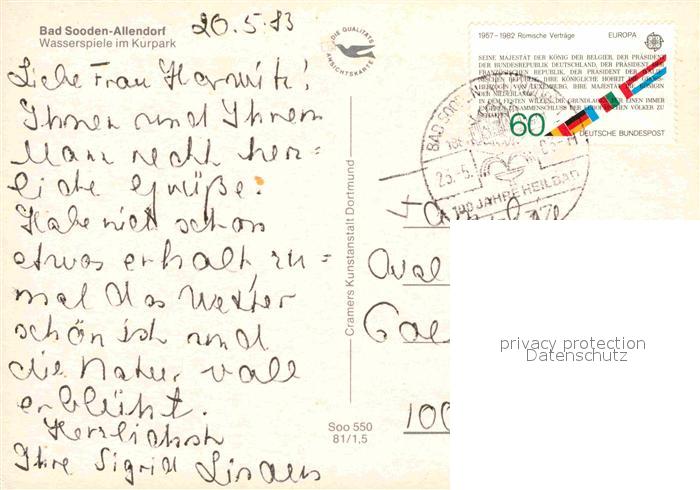 Bad Sooden-Allendorf
Wasserspiele im Kurpark
20.5.83
Liebe Frau
Ihnen und Ihrem
Mann recht herz=
liche Grüße.
Habe mich schon
etwas erholt, zu=
mal das Wetter
schön ist und
die Natur voll
erblüht.
Herzlichst
Ihre Sigrid
DIE QUALITÄTS
ANSICHTSKARTE
Cramers Kunstanstalt Dortmund
Soo 550
81/1,5
1957-1982 Römische Verträge EUROPA CEPT
SEINE MAJESTÄT DER KÖNIG DER BELGIER, DER PRÄSIDENT
DER BUNDESREPUBLIK DEUTSCHLAND, DER PRÄSIDENT DER
FRANZÖSISCHEN REPUBLIK, DER PRÄSIDENT DER
REPUBLIK, IHRE KÖNIGLICHE HOHEIT
HERZOGIN VON LUXEMBURG, IHRE MAJESTÄT DIE KÖNIGIN
DER NIEDERLANDE
IN DEM FESTEN WILLEN, DIE GRUNDLAGEN FÜR EINEN IMMER
ENGEREN ZUSAMMENSCHLUSS DER EUROPÄISCHEN VÖLKER ZU
SCHAFFEN
60 DEUTSCHE BUNDESPOST
BAD SOODEN
100 JAHRE HEILBAD
100
privacy protection
Datenschutz